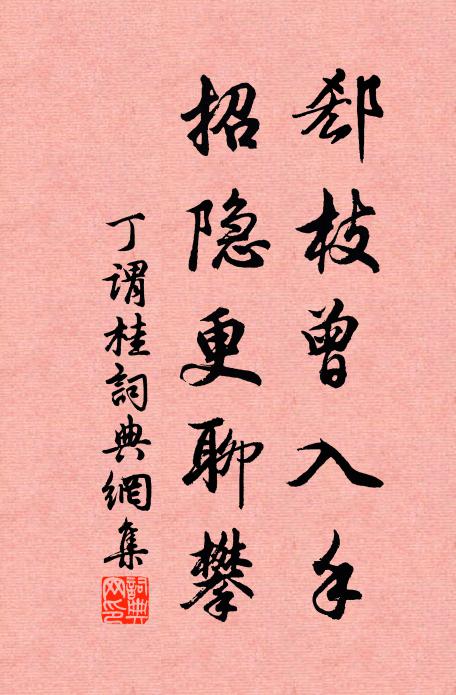 郄枝曾入手
招隐更聊攀
丁谓桂詞典網集
詞典网印